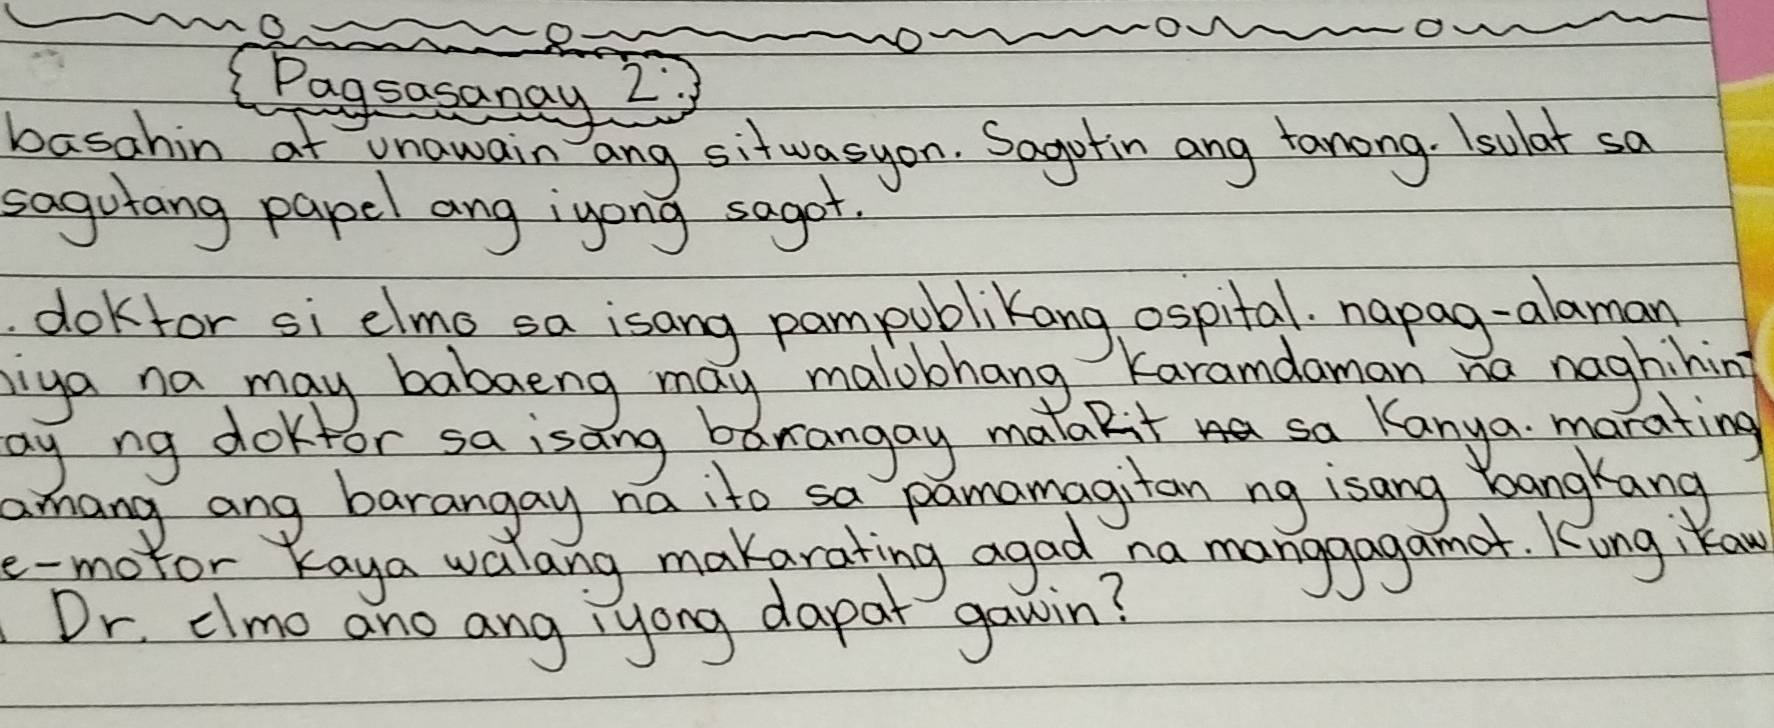 Pagsasanay 2:
basahin at unawain ang sitwasyon. Sagutin ang tanong. Isulat sa
sagutang papel ang iyong sagot.
. doktor si elmo sa isang pampublikong ospital. napag-alaman
niya na may babaeng may malubhang karamdaman na naghihint
ay ng doktor sa isang barangay malapit na sa kanya. marating
amang ang barangay na ito sa pamamagitan ng isang bangkang
e-motor kaya walang makarating agad na manggagamot. Kung ikaw
Dr. elmo ano ang iyong dapat gawin?